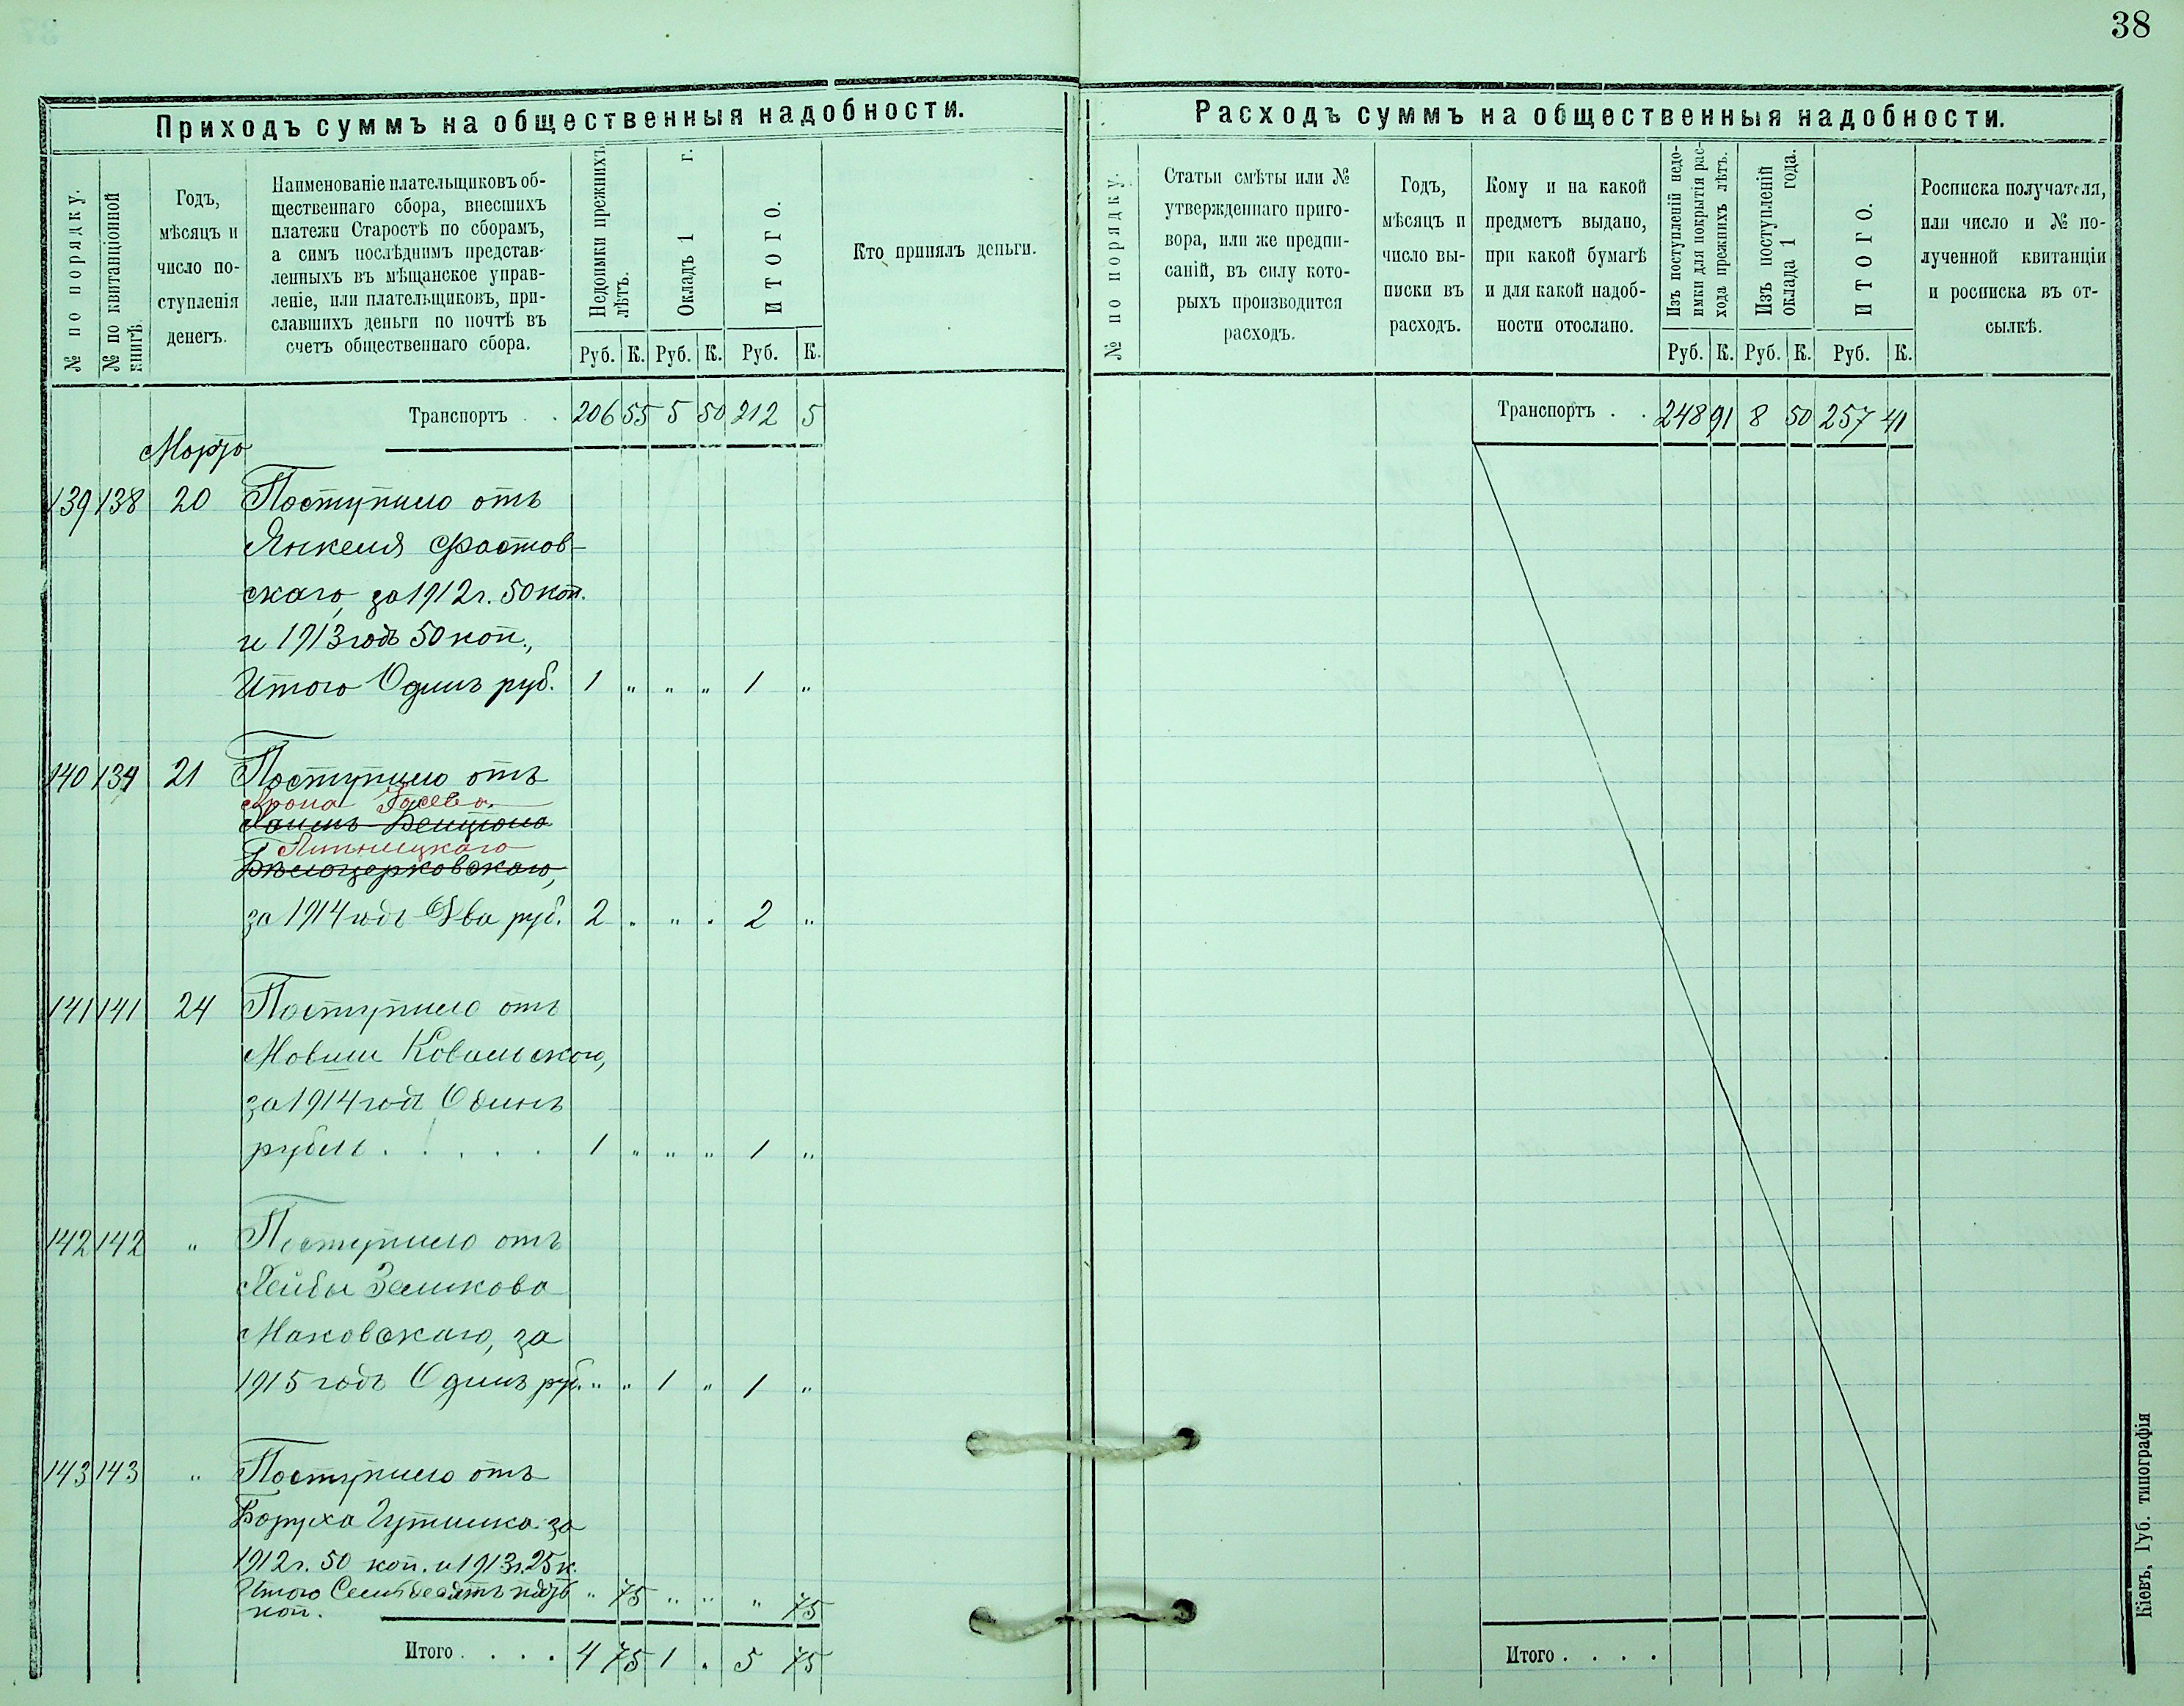 38
Приходъ суммъ на общественныя надобности.
№ по порядку.
№ по квитанціонной книгѣ.
Годъ,
мѣсяцъ и
число по-
ступленія
денегъ.
Наименованіе плательщиковъ об-
щественнаго сбора, внесшихъ
платежи Старостѣ по сборамъ,
а симъ послѣднимъ представ-
ленныхъ въ мѣщанское управ-
леніе, или плательщиковъ, при-
славшихъ деньги по почтѣ въ
счетъ общественнаго сбора.
Недоимки прежнихъ
лѣтъ.
Окладъ 1 г.
ИТОГО.
Руб. К. Руб. К. Руб. К.
Кто принялъ деньги.
Транспортъ . . 206 55 5 50 212 5
Марта
139 138 20 Поступило отъ
Янкеля Фастов-
скаго, за 1912 г. 50 коп.
и 1913 годъ 50 коп.,
Итого Одинъ руб. 1 " " " 1 "
140 139 21 Поступило отъ
Арона
Бѣлоцерковскаго,
за 1914 годъ Два руб. 2 " " " 2 "
141 141 24 Поступило отъ
Мовши Ковальскаго,
за 1914 годъ Одинъ
рубль . . . . . 1 " " " 1 "
142 142 " Поступило отъ
Лейбы Зелikова
Маковскаго, за
1915 годъ Одинъ руб. " " 1 " 1 "
143 143 " Поступило отъ
Боруха Гутника за
1912 г. 50 коп. и 1913 г. 25 к.
Итого Семьдесятъ пять " 75 " " " 75
коп.
Итого . . . . 4 75 1 . 5 75
Расходъ суммъ на общественныя надобности.
№ по порядку.
Статьи смѣты или №
утвержденнаго приго-
вора, или же предпи-
саній, въ силу кото-
рыхъ производится
расходъ.
Годъ,
мѣсяцъ и
число вы-
писки въ
расходъ.
Кому и на какой
предметъ выдано,
при какой бумагѣ
и для какой надоб-
ности отослано.
Изъ поступленій недо-
имки для покрытія рас-
хода прежнихъ лѣтъ.
Изъ поступленій
оклада 1 года.
ИТОГО.
Руб. К. Руб. К. Руб. К.
Росписка получателя,
или число и № по-
лученной квитанціи
и росписка въ от-
сылкѣ.
Транспортъ . . 248 91 8 50 257 41
Итого . . . .
Кіевъ, Губ. типографія